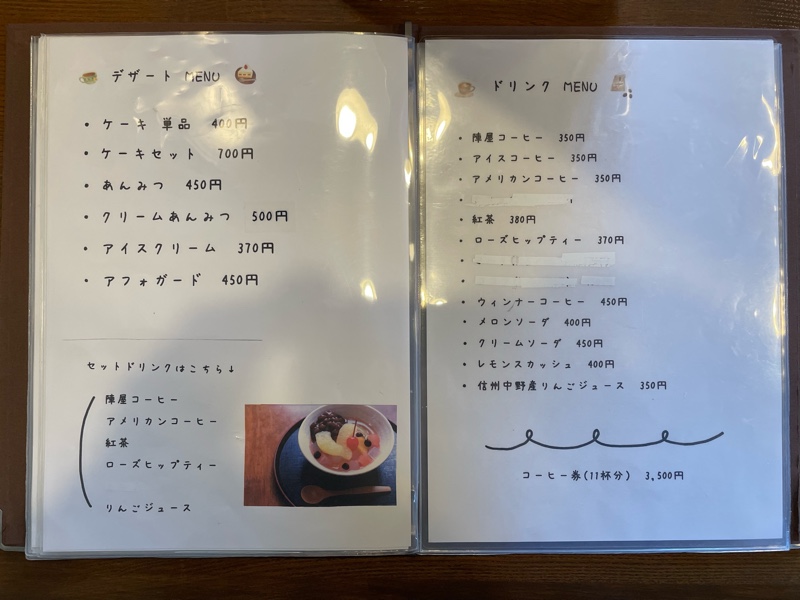 デザート MENU
・ケーキ 単品 400円
・ケーキセット 700円
・あんみつ 450円
・クリームあんみつ 500円
・アイスクリーム 370円
・アフォガード 450円
セットドリンクはこちら↓
陣屋コーヒー
アメリカンコーヒー
紅茶
ローズヒップティー
りんごジュース
ドリンク MENU
・陣屋コーヒー 350円
・アイスコーヒー 350円
・アメリカンコーヒー 350円
・
・紅茶 380円
・ローズヒップティー 370円
・
・
・ウィンナーコーヒー 450円
・メロンソーダ 400円
・クリームソーダ 450円
・レモンスカッシュ 400円
・信州中野産りんごジュース 350円
コーヒー券(11杯分) 3,500円